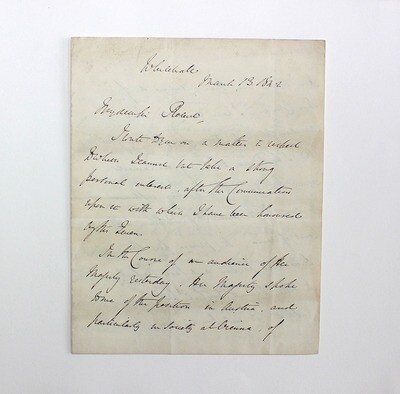 Whitehall
March 13. 1842
My dear Sir Robert,
I write to you on a matter to which
I cannot but take a strong
personal interest, after the Communication
upon it with which I have been honoured
by the Queen.
In the Course of an audience of Her
Majesty yesterday, Her Majesty spoke
to me of the position in Austria, and
particularly in Society at Vienna, of